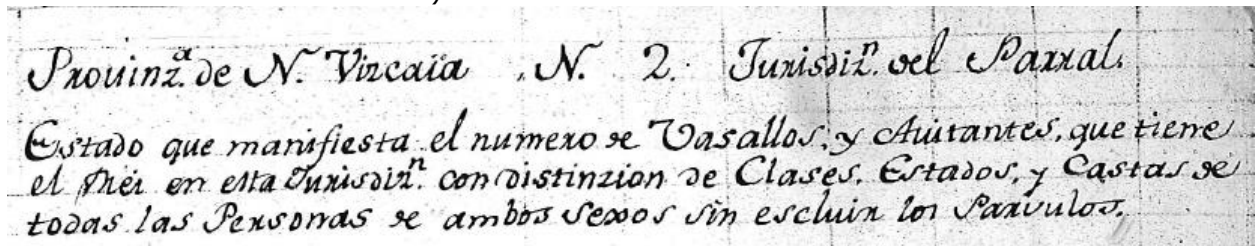 Provinz.ª de N. Vizcaia . N. 2. Jurisdiz.ⁿ del Parral.
Estado que manifiesta el numero de Vasallos, y Avitantes, que tiene
el Rei en esta Jurisdiz.ⁿ con distinzion de Clases, Estados, y Castas de
todas las Personas de ambos sexos sin escluir los Parvulos.